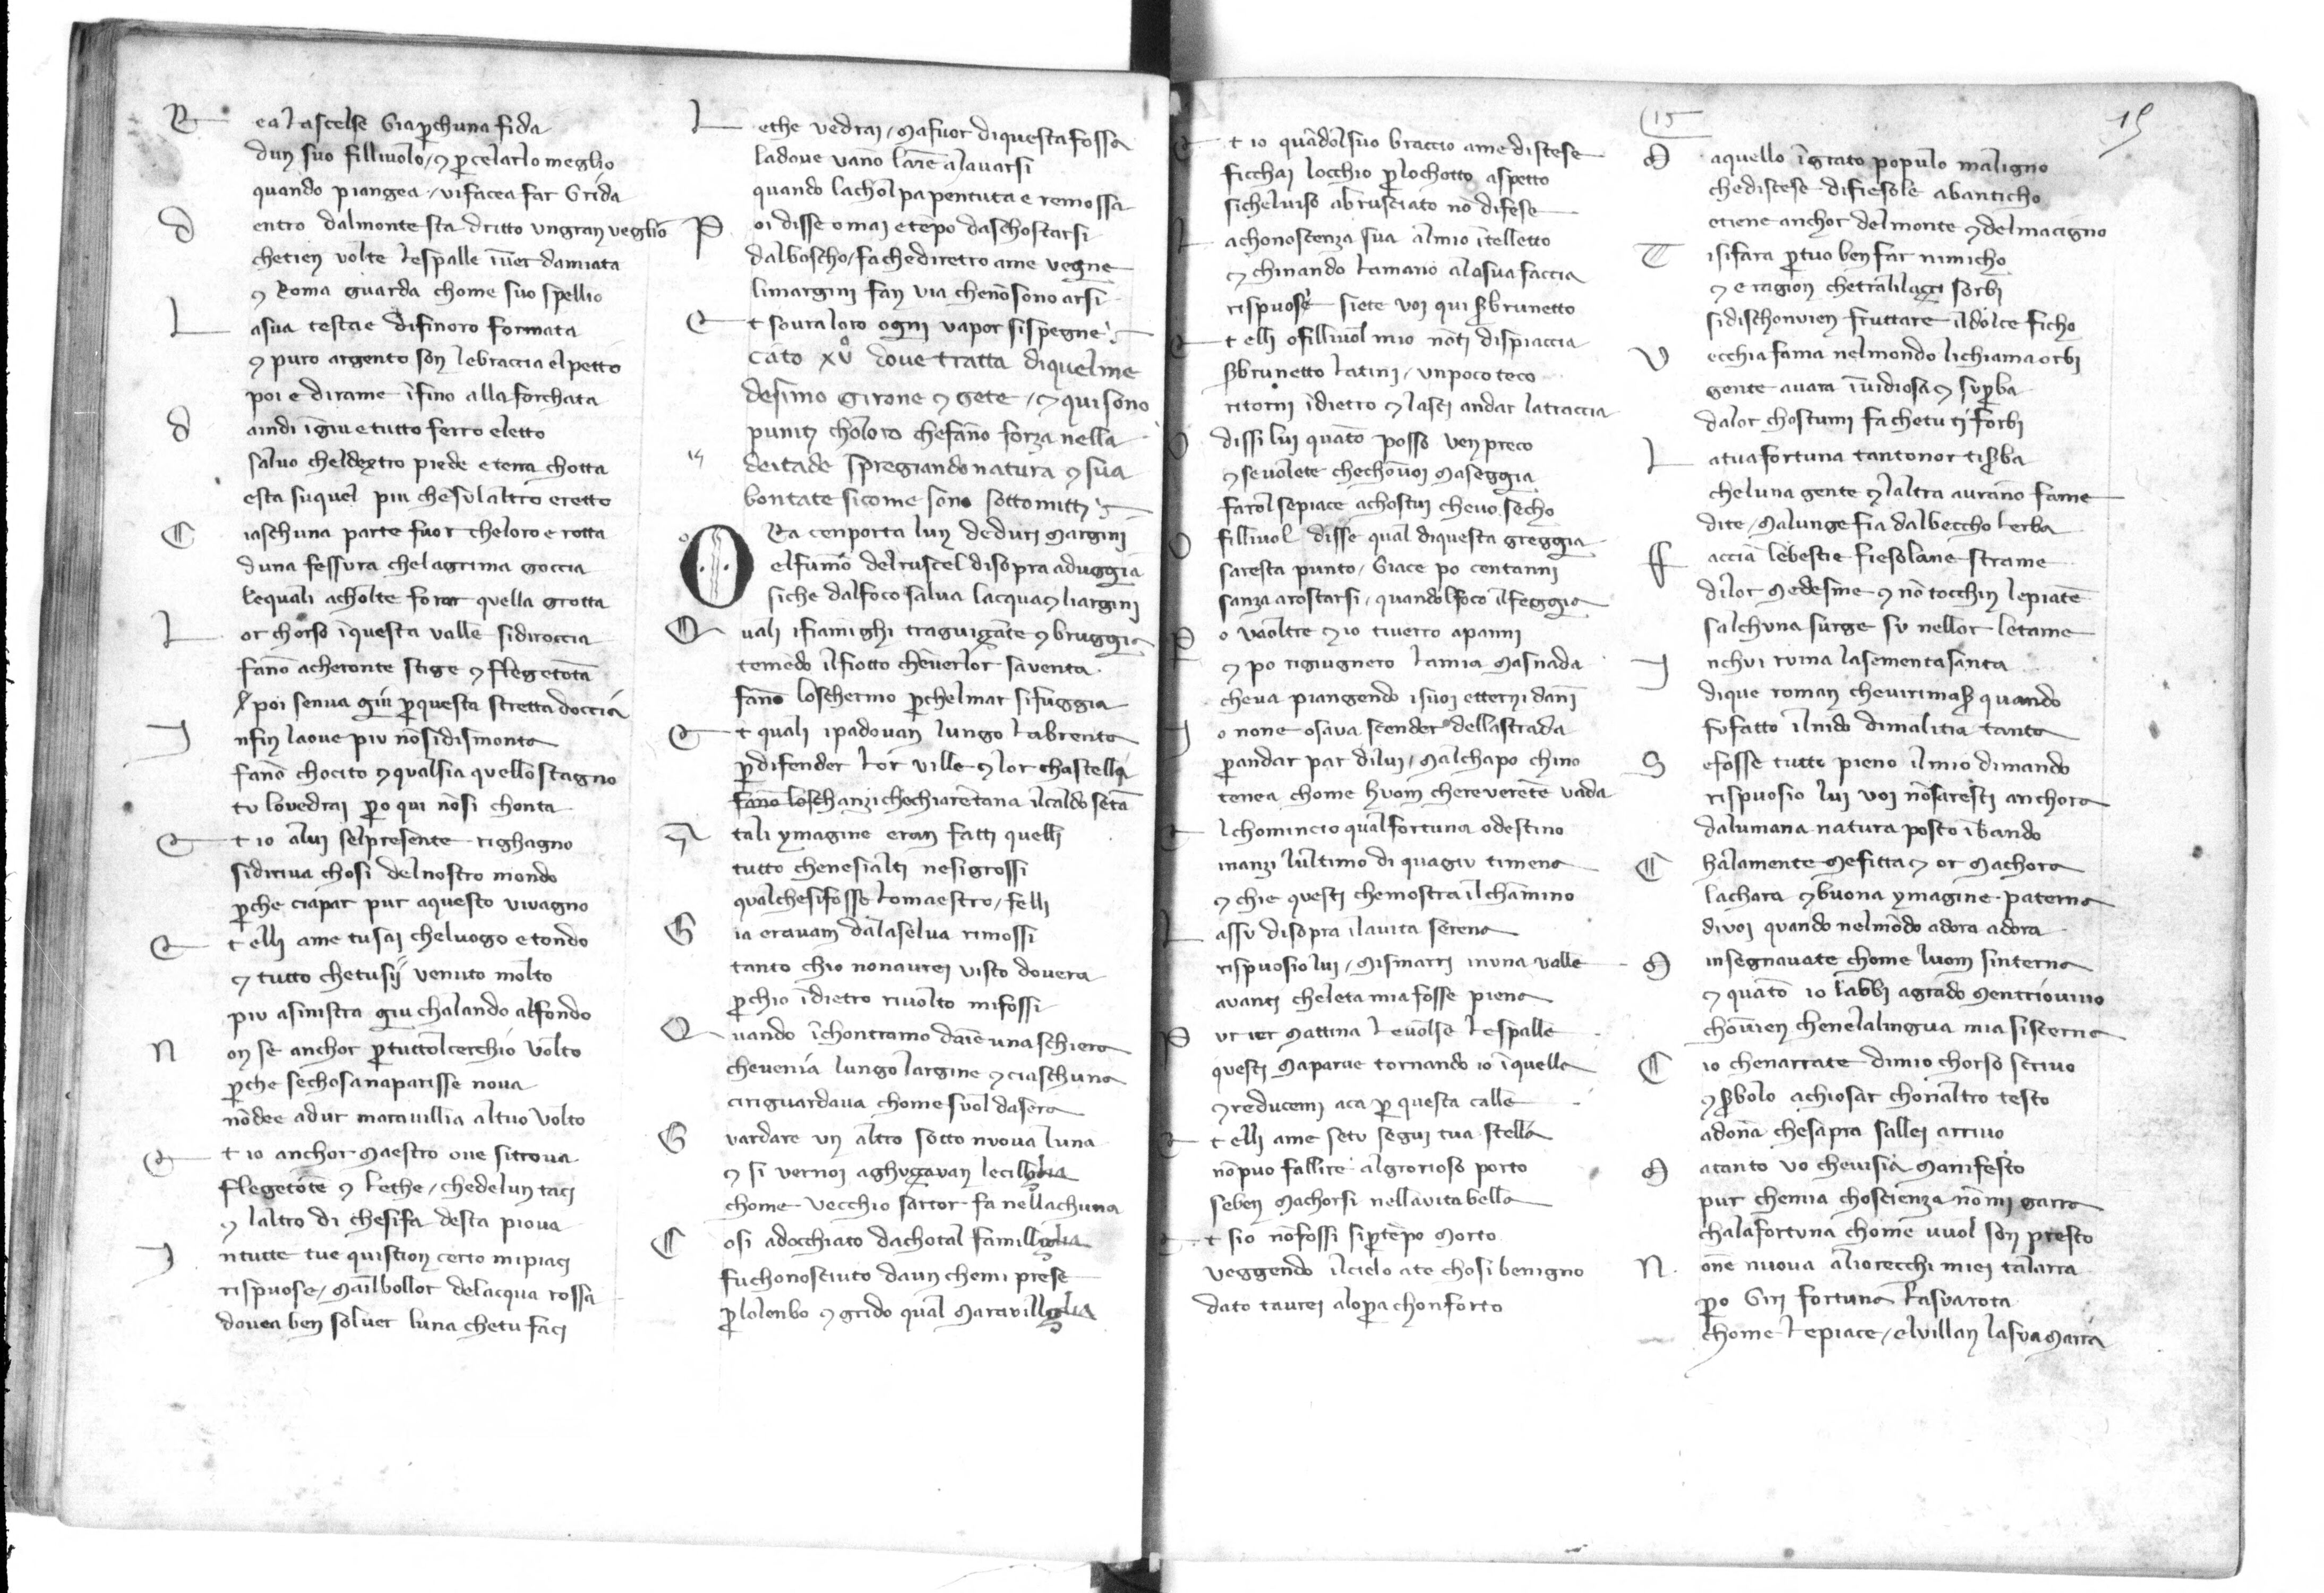 R ea la scelse Gia p̱chuna fida
dun suo fillivolo / ⁊ p̱ celarlo meglio
quando piangea / vi facea far Grida
d entro dalmonte sta dritto un gran veglio
che tien volte le spalle īver damiata
⁊ Roma guarda chome suo spellio
L a sua testa e difinoro formata
⁊ puro argento son le braccia el petto
poi e dirame īfino alla forchata
d aindi īgiu e tutto ferro eletto
salvo cheldextro piede e terra chotta
esta suquel piu che sulaltro eretto
C iaschuna parte fuor cheloro e rotta
duna fessura che lagrima goccia
lequali acholte foran quella grotta
L or chorso īquesta valle sidiroccia
fanō acheronte stige ⁊ flegetōta
⁊ poi senva giu p̱questa stretta doccia
I nfin laove piu nō sidismonta
fanō chocito ⁊ qualsia quello stagno
tu lovedrai p̱o qui nōsi chonta
E t io alui selpresente righagno
sidiriva chosi delnostro mondo
p̱che ciapar pur aquesto vivagno
E t elli ame tusai cheluogo e tondo
⁊ tutto chetusij venuto molto
piu asinistra giu chalando alfondo
N on se anchor p̱tuttolcerchio volto
p̱che sechosa naparisse nova
nōdee adur maravillia altuo volto
E t io anchor Maestro ove sitrova
flegetōte ⁊ Lethe / chedelun taci
⁊ laltro di chesifa desta piova
I ntutte tue quistion certo mipiaci
rispuose / Mailbollor delacqua rossa
dovea ben solver luna chetu faci
L ethe vedrai / Mafuor diquesta fossa
ladove vanō lanīe alavarsi
quando lacholpa pentuta e remossa
P oi disse omai e tēpo daschostarsi
dalboscho / fa chediretro ame vegne
limargini fan via chenō sono arsi
E t sovraloro ogni vapor sispegne
Cāto xv° dove tratta diquelme
desimo girone ⁊ gēte / ⁊ qui sono
puniti choloro chefāno forza nella
deitade spregiando natura ⁊ sua
bontate sicome sono sottomitti
O Ra cenporta lun deduri Margini
elfumo delruscel disopra aduggia
siche dalfoco salva lacqua ⁊ liargini
Q uali ifiaminghi traguigāte ⁊ bruggia
temēdo ilfiotto chēverlor saventa
fanno loschermo p̱chelmar sifuggia
E t quali ipadovan lungo Labrenta
p̱ difender Lor ville ⁊ lor chastella
fanno loschanzi chechiarētana ilcaldo sēta
A tali ymagine eran fatti quelli
tutto chenesialti nesigrossi
qualchesifosse Lomaestro / felli
G ia eravam dalaselva rimossi
tanto chio nonaurei visto dovera
p̱chio īdietro rivolto mifossi
Q uando īchontramo danīe unaschiera
chevenia lungo largine ⁊ ciaschuna
ciriguardava chome suol dasera
G vardare un altro sotto nuova luna
⁊ si vernoi aghuzavan lecillglia
chome vecchio sartor fa nellachuna
C osi adocchiato dachotal famillglia
fuchonosciuto daun chemi prese
p̱ lolenbo ⁊ grido qual Maravillglia
E t io quādolsuo braccio ame distese
ficchai locchio p̱ lochotto aspetto
sichelviso abrusciato nō difese
L achonoscenza sua almio ītelletto
⁊ chinando Lamano alasua faccia
rispuose siete voi qui s̱ brunetto
E t elli ofillivol mio nōti dispiaccia
s̱ brunetto Latini / unpoco teco
ritorni īdietro ⁊ lasci andar latraccia
I dissi lui quāto posso ven preco
⁊ sevolete chechōvoi Maseggia
farol sepiace achostui chevo secho
O fillivol disse qual diquesta greggia
saresta punto / Giace po centanni
sanza arostarsi / quandolfoco ilfeggia
P o vaoltre ⁊ io tiverro apanni
⁊ po rigiugnero Lamia Masnada
cheva piangendo isuoi etterni danī
I o none osava scender dellastrada
p̱ andar par dilui / Malchapo chino
tenea chome huom chereverēte vada
E lchomincio qual fortuna odestino
inanzi lultimo di quagiu timena
⁊ chie questi chemostra ilchamino
L assu disopra ilavita serena
rispuosio lui / Mismarri inuna valle
avanti cheleta mia fosse piena
P ur ier Mattina Levolse Lespalle
questi Maparve tornando io īquella
⁊ reducemi aca p̱ questa calle
E t elli ame setu segui tua stella
nōpuo fallire algrorioso porto
seben Machorsi nellavita bella
E t sio nōfossi sip̱tēpo Morto
veggendo ilcielo ate chosi benigno
dato taurei alop̱a chonforto
(15
15
M aquello īgrato populo maligno
chediscese difiesole abanticho
etiene anchor delmonte ⁊ delmacigno
T isifara p̱tuo ben far nimicho
⁊ e ragion chetralilaçi sorbi
sidischonvien fruttare ildolce ficho
V ecchia fama nelmondo lichiama orbi
gente avara īvidiosa ⁊ sup̱ba
dalor chostumi fa chetu ti forbi
L atua fortuna tantonor tis̱ba
cheluna gente ⁊ laltra avranno fame
dite / Malunge fia dalbeccho Lerba
F accia lebestie fiesolane strame
dilor Medesme ⁊ nō tocchin lepiāte
salchuna surge su nellor letame
I nchui riviva lasementa santa
dique roman chevirimas̱ quando
fufatto ilnido dimalitia tanta
S efosse tutto pieno ilmio dimando
rispuosio lui voi nōsaresti anchora
dalumana natura posto ībando
C halamente Mefitta ⁊ or Machora
lachara ⁊ buona ymagine paterna
divoi quando nelmōdo adora adora
M insegnavate chome luom sinterna
⁊ quāto io labbi agrado Mentriovivo
chōvien chenelalingua mia siscerna
C io chenarrate dimio chorso scrivo
⁊ s̱bolo achiosar chonaltro testo
adonna chesapra sallei arrivo
M atanto vo chevisia Manifesto
pur chemia choscienza nōmi garra
chalafortuna chome vuol son presto
N onē nuova aliorecchi miei talarra
p̱o Giri fortuna Lasuarota
chome Lepiace / elvillan lasua Marra